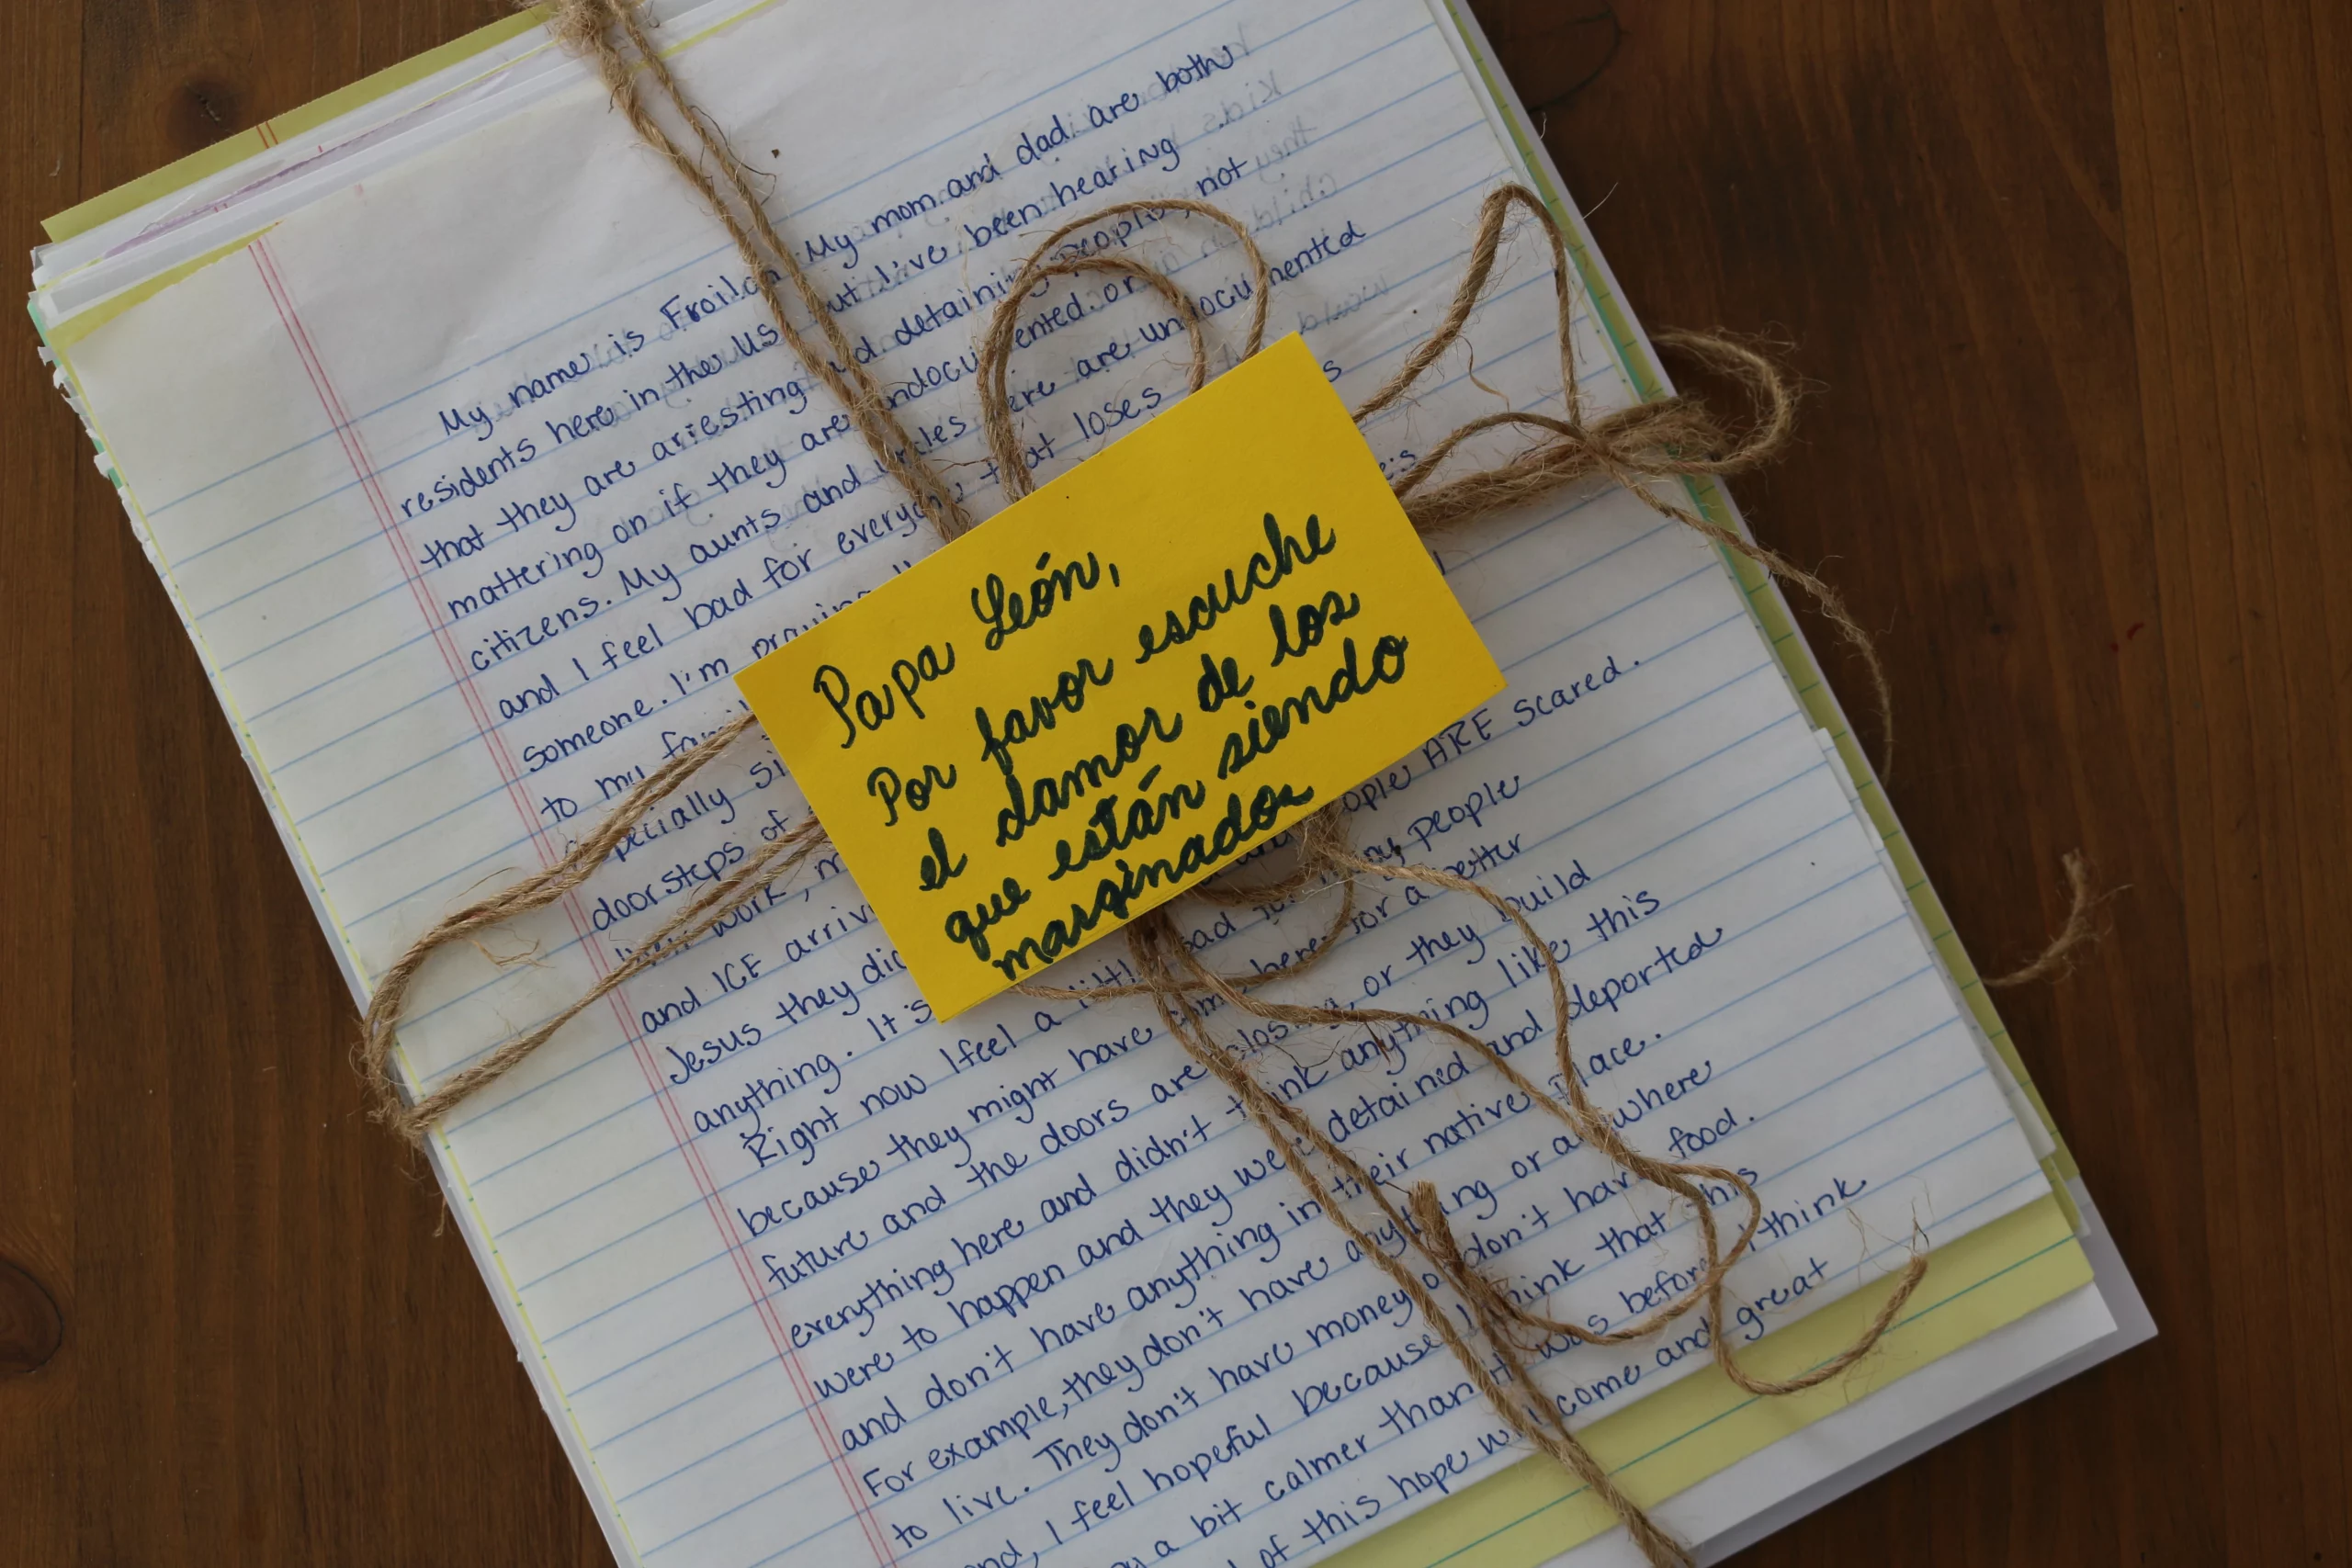 My name is Froilan. My mom and dad are both
residents here in the US but I've been hearing
that they are arresting and detaining people, not
mattering on if they are undocumented or
citizens. My aunts and uncles here are undocumented
and I feel bad for everyone that loses
someone. I'm praying
to my
especially
doorsteps of
work,
and ICE
Jesus they
anything. It's
people ARE scared.
Right now I feel a little sad many people
because they might have come here for a better
future and the doors are closing, or they build
everything here and didn't think anything like this
were to happen and they were detained and deported
and don't have anything in their native place.
For example, they don't have anything or anywhere
to live. They don't have money or don't have food.
and, I feel hopeful because I think that this
a bit calmer than it was before. I think
of this hope will come and great
Papa León,
Por favor escuche
el clamor de los
que están siendo
marginados